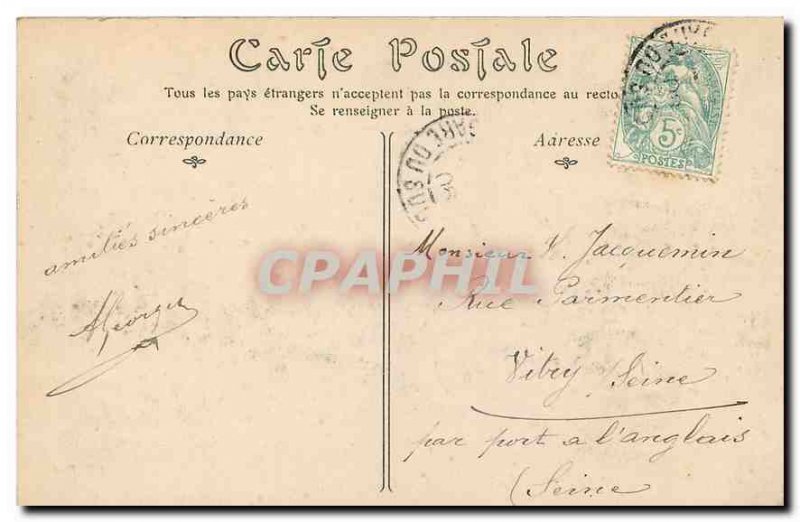 Carte Postale
Tous les pays étrangers n'acceptent pas la correspondance au recto
Se renseigner à la poste.
Correspondance
Adresse
5c
POSTES
GARE DU SUD
amitiés sincères
AGeorges
CPAPHIL
Monsieur H. Jacquemin
Rue Parmentier
Vitry Seine
par port a l'anglais
(Seine